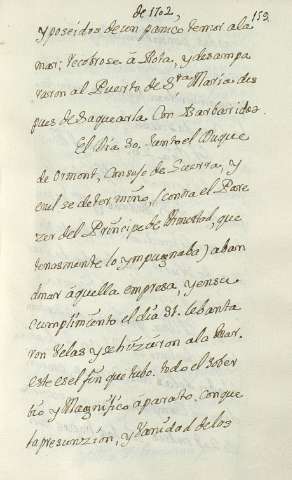 de 1702, 159.
y poseidos de un panico temor a la
mar; recobrose â Rota, y desampa
raron al Puerto de Sta Maria des
pues de saquearla con Barbaridad.
El dia 30. Juntò el Duque
de Ormont, Consejo de Guerra, y
en el se determinò, (contra el Pare
zer del Principe de Armestad, que
tenasmente lo ympugnaba) aban
donar âquella empresa, y en su
cumplimiento el dia 31. lebanta
ron Velas y se hizieron a la Mar.
este es el fin que tubo todo el sober
bio y Magnifico âparato, con que
la presunzion, y Vanidad de los